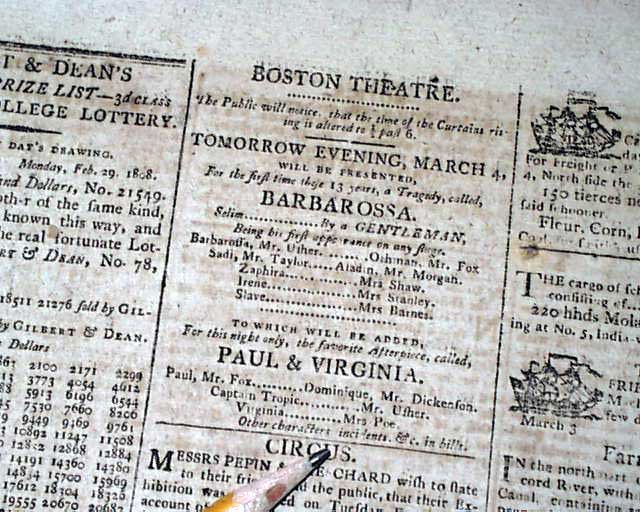 T & DEAN'S
PRIZE LIST—3d CLASS
OLLEGE LOTTERY.
DAY'S DRAWING.
Monday, Feb. 29. 1808.
and Dollars, No. 21549.
oth-r of the same kind,
known this way, and
he real fortunate Lot-
RT & DEAN, No. 78,
18511 21276 sold by GIL-
by GILBERT & DEAN.
Dollars
2100 2171 2299
3773 4054 4612
5913 6196 6544
7530 7660 8206
9449 9469 9761
10892 11247 11508
12868 12884
14191 14360 14380
14834 15700 15969
17612 18304 18326
19555 20670
BOSTON THEATRE.
The Public will notice, that the time of the Curtains ris-
ing is altered to ½ past 6.
TOMORROW EVENING, MARCH 4,
WILL BE PRESENTED,
For the first time these 13 years, a Tragedy, called,
BARBAROSSA.
Selim...............By a GENTLEMAN,
Being his first appearance on any stage.
Barbarossa, Mr. Usher........Othman, Mr. Fox
Sadi, Mr. Taylor.....Aladin, Mr. Morgan.
Zaphira...............Mrs Shaw.
Irene..................Mrs Stanley.
Slave..................Mrs Barnes.
TO WHICH WILL BE ADDED,
For this night only, the favorite Afterpiece, called,
PAUL & VIRGINIA.
Paul, Mr. Fox..........Dominique, Mr. Dickenson.
Captain Tropic............Mr. Usher.
Virginia.............Mrs Poe.
Other characters, incidents, &c. in bills.
CIRCUS.
MESSRS PEPIN & BRESCHARD wish to state
to their the public, that their Ex-
hibition was on Tuesday
account of
For Freight or
4, North side the
150 tierces
said schooner.
Flour, Corn,
THE cargo of sch
consisting of
220 hhds
ing at No. 5, India
FRI
few
March 3
IN the north part
cord River, with
Canal, containing